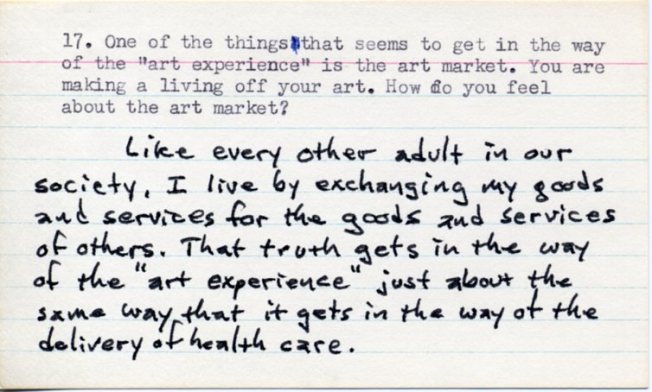 17. One of the things that seems to get in the way
of the "art experience" is the art market. You are
making a living off your art. How do you feel
about the art market?
Like every other adult in our
society, I live by exchanging my goods
and services for the goods and services
of others. That truth gets in the way
of the "art experience" just about the
same way that it gets in the way of the
delivery of health care.